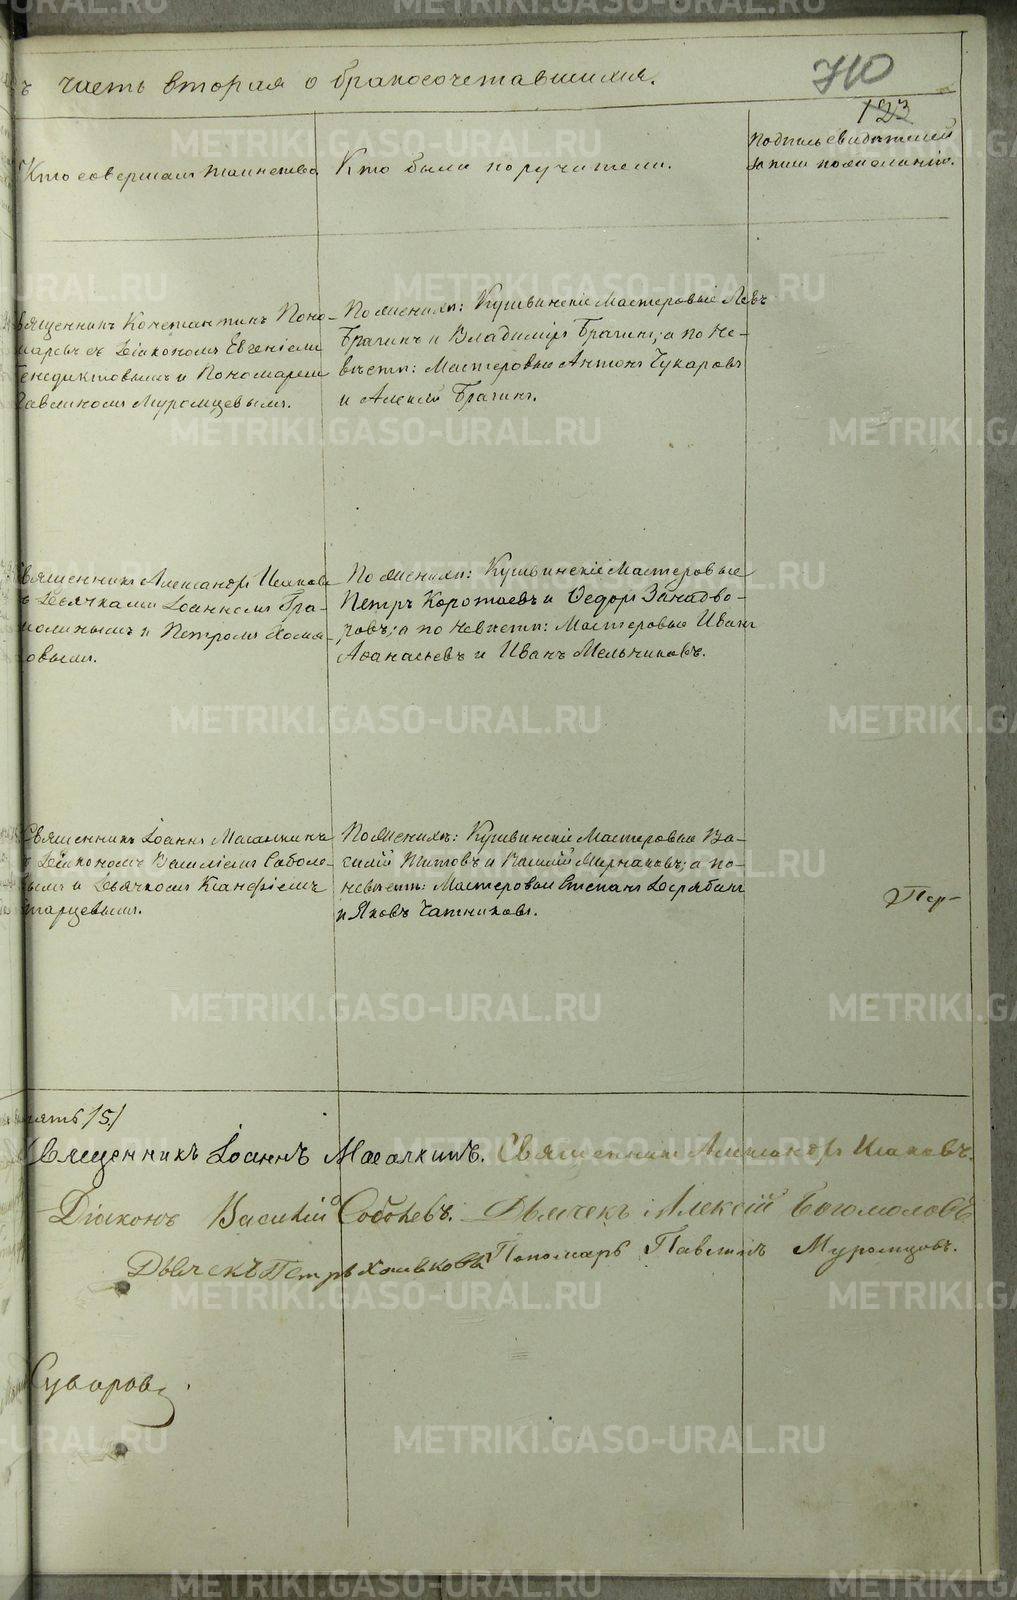 ъ часть вторая о бракосочетавшихся.
710
123
Кто совершалъ таинство.
Кто были поручители.
Подпись свидѣтелей записи по желанію.
вященникъ Константинъ Поно-
маревъ съ Діакономъ Евгеніемъ
енедиктовымъ и Пономаремъ
авлиномъ Муромцевымъ.
По женихѣ: Кушвинскіе Мастеровые Левъ
Брагинъ и Владиміръ Брагинъ, а по не-
вѣстѣ: Мастеровые Антонъ Чукаровъ
и Алексѣй Брагинъ.
вященникъ Александръ
ъ Дьячками Іоанномъ Гра-
молинымъ и Петромъ Хомя-
ковымъ.
По женихѣ: Кушвинскіе Мастеровые
Петръ Коротаевъ и Ѳедоръ
а по невѣстѣ: Мастеровые Иванъ
Аѳанасьевъ и Иванъ Мельчиковъ.
Священникъ Іоаннъ Масалкинъ
съ Діакономъ Василіемъ Соболе-
вымъ и Дьячкомъ
тарцевымъ.
По женихѣ: Кушвинскіе Мастеровые Ва-
силій Титовъ и Василій а по
невѣстѣ: Мастеровые Степанъ Дерябинъ
и Яковъ
Пер-
пять /5/
Священникъ Іоаннъ Масалкинъ. Священникъ Александръ
Діаконъ Василій Соболевъ. Дьячекъ Алексій Богомоловъ
Дьячекъ Петръ Хомяковъ Пономарь Павлинъ Муромцовъ.
Суворовъ.
METRIKI.GASO-URAL.RU